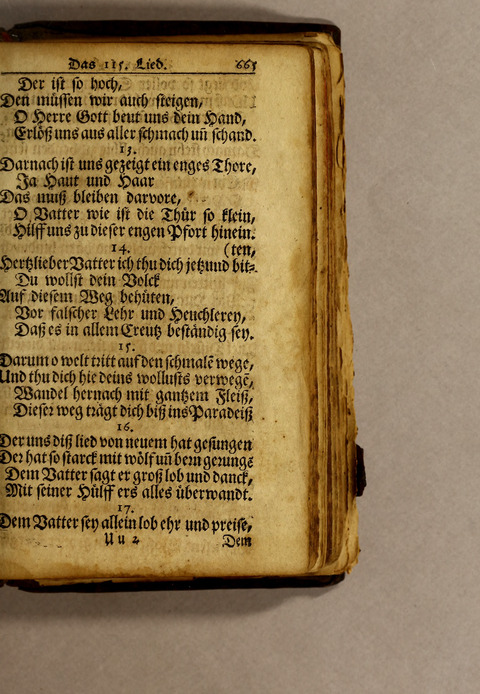 Das 115. Lied. 665
Der ist so hoch,
Den müssen wir auch steigen,
O Herre Gott beut uns dein Hand,
Erlöß uns aus aller schmach uñ schand.
13.
Darnach ist uns gezeigt ein enges Thore,
Ja Haut und Haar
Das muß bleiben darvore,
O Vatter wie ist die Thür so klein,
Hilff uns zu dieser engen Pfort hinein.
14. (ten,
Hertzlieber Vatter ich thu dich jetzund bit-
Du wollst dein Volck
Auf diesem Weg behüten,
Vor falscher Lehr und Heuchlerey,
Daß es in allem Creutz beständig sey.
15.
Darum o welt tritt auf den schmalẽ wege,
Und thu dich hie deins wollusts verwegẽ,
Wandel hernach mit gantzem Fleiß,
Dieser weg trägt dich biß ins Paradeiß
16.
Der uns diß lied von neuem hat gesungen
Der hat so starck mit wölf uñ bern gerungẽ
Dem Vatter sagt er groß lob und danck,
Mit seiner Hülff ers alles überwandt.
17.
Dem Vatter sey allein lob ehr und preise,
Uu 2 Dem